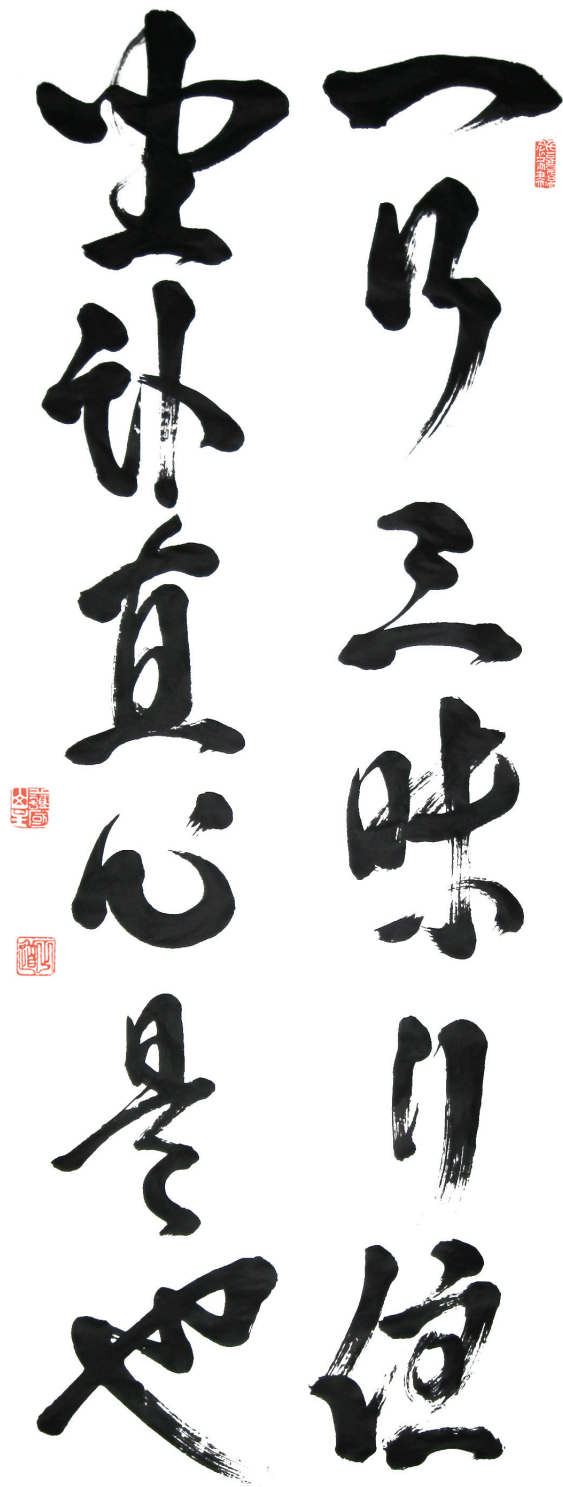 一行三昧行住
坐臥直心是也